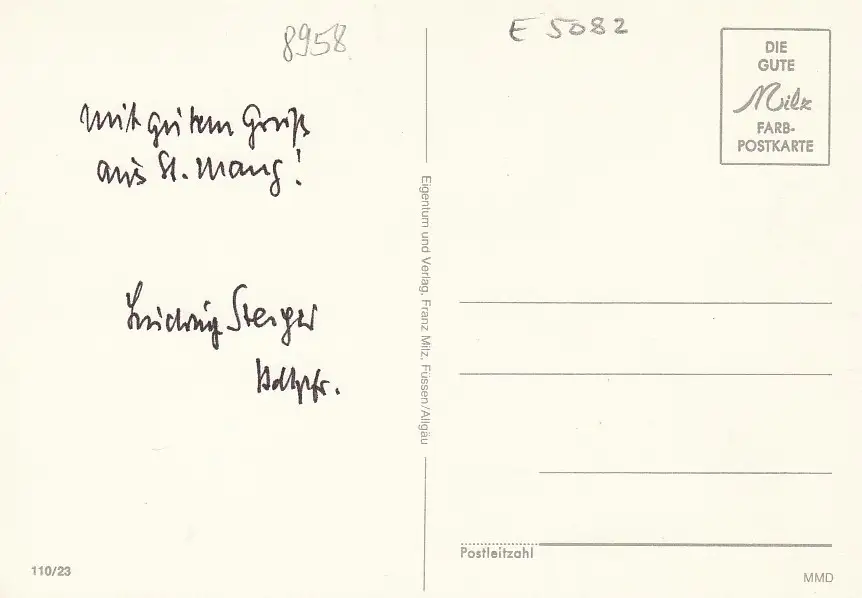 8958
mit gutem Gruß
aus St. Mang!
Ludwig Steiger
Stdtpfr.
110/23
Eigentum und Verlag, Franz Milz, Füssen/Allgäu
E 5082
DIE
GUTE
Milz
FARB-
POSTKARTE
Postleitzahl
MMD